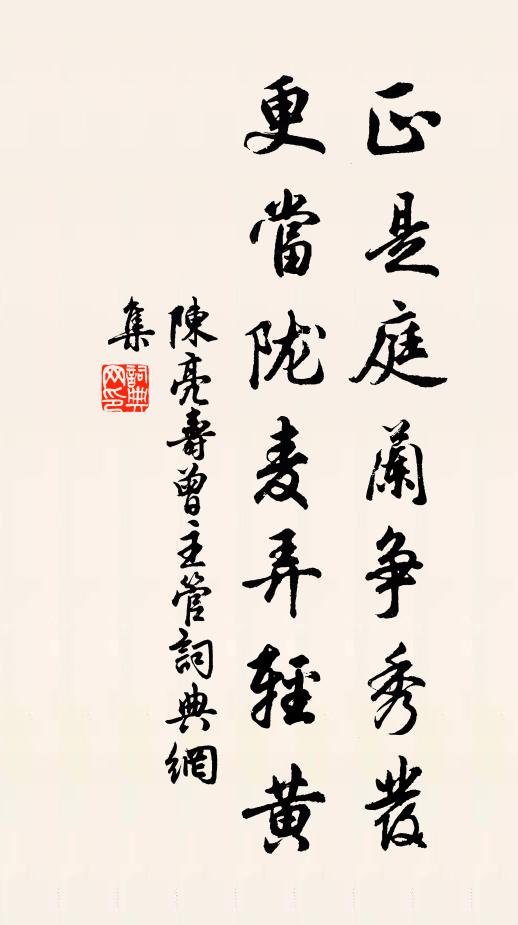 正是庭蘭争秀發
更當陇麦弄輕黄
陳亮壽曾主管詞典網
集
詞典网印